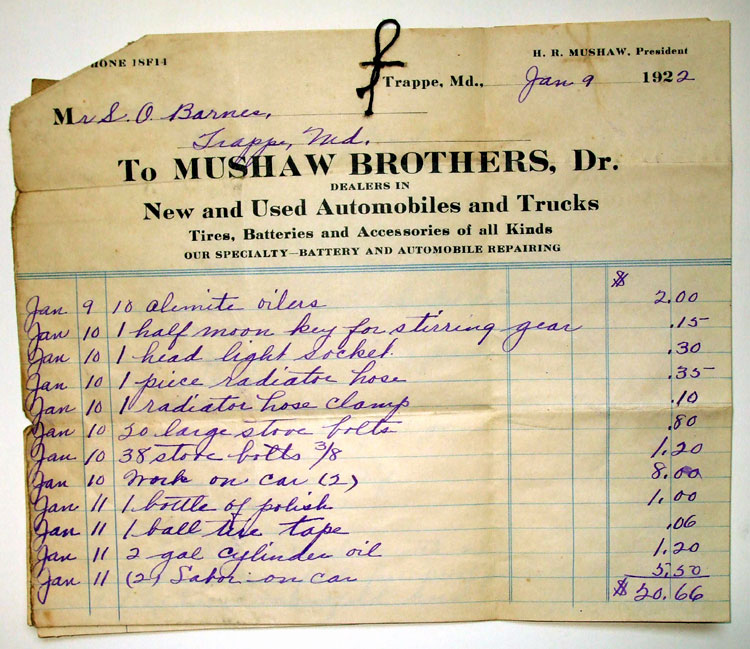 HONE 18F14
H. R. MUSHAW, President
Trappe, Md., Jan 9 1922
Mr S. O. Barnes,
Trappe, Md.
To MUSHAW BROTHERS, Dr.
DEALERS IN
New and Used Automobiles and Trucks
Tires, Batteries and Accessories of all Kinds
OUR SPECIALTY—BATTERY AND AUTOMOBILE REPAIRING
$
Jan 9 10 alemite oilers 2.00
Jan 10 1 half moon key for stirring gear .15
Jan 10 1 head light socket .30
Jan 10 1 piece radiator hose .35
Jan 10 1 radiator hose clamp .10
Jan 10 20 large stove bolts .80
Jan 10 38 stove bolts 3/8 1.20
Jan 10 Work on car (2) 8.00
Jan 11 1 bottle of polish 1.00
Jan 11 1 ball tire tape .06
Jan 11 2 gal cylinder oil 1.20
Jan 11 (2) Labor on car 5.50
$ 20.66